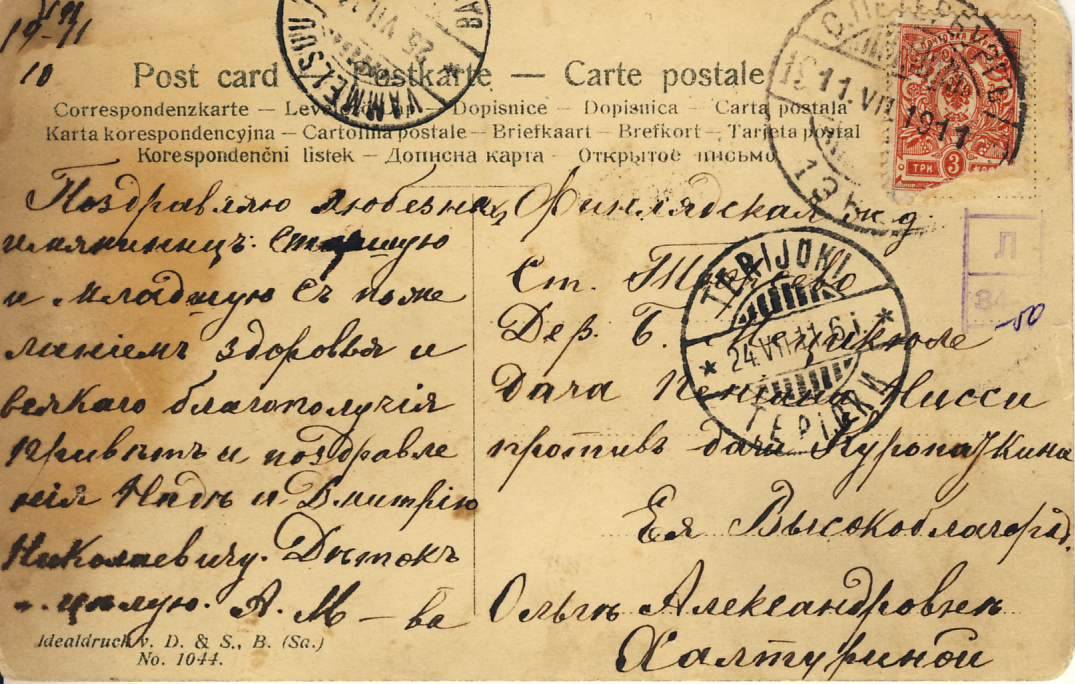 19 11
10
VAMMELSUU
Post card — Postkarte — Carte postale
С.ПЕТЕРБУРГЪ
11.VII 1911
ТРИ 3
Correspondenzkarte — Dopisnice — Dopisnica — Carta postala
Karta korespondencyjna — Cartolina postale — Briefkaart — Brefkort — Tarjeta postal
Korespondenčni listek — Дописна карта — Открытое письмо
Поздравляю любезныхъ
имянинницъ старшую
и младшую съ поже
ланіемъ здоровья и
всякаго благополучія
привѣтъ и поздравле
нія Надѣ и Дмитрію
Николаевичу. Дѣтокъ
цѣлую. А. М — ва
Финлядская ж. д.
Ст.
Дер. Б.
Дача Нисси
противъ дачи Куропаткина
Ея Высокоблагород.
Ольгѣ Александровнѣ
Халтуриной
TERIJOKI
24.VII.11.6 i.
ТЕРІОКИ
Л
84
-50
Idealdruck v. D. & S., B. (Sa.)
No. 1044.